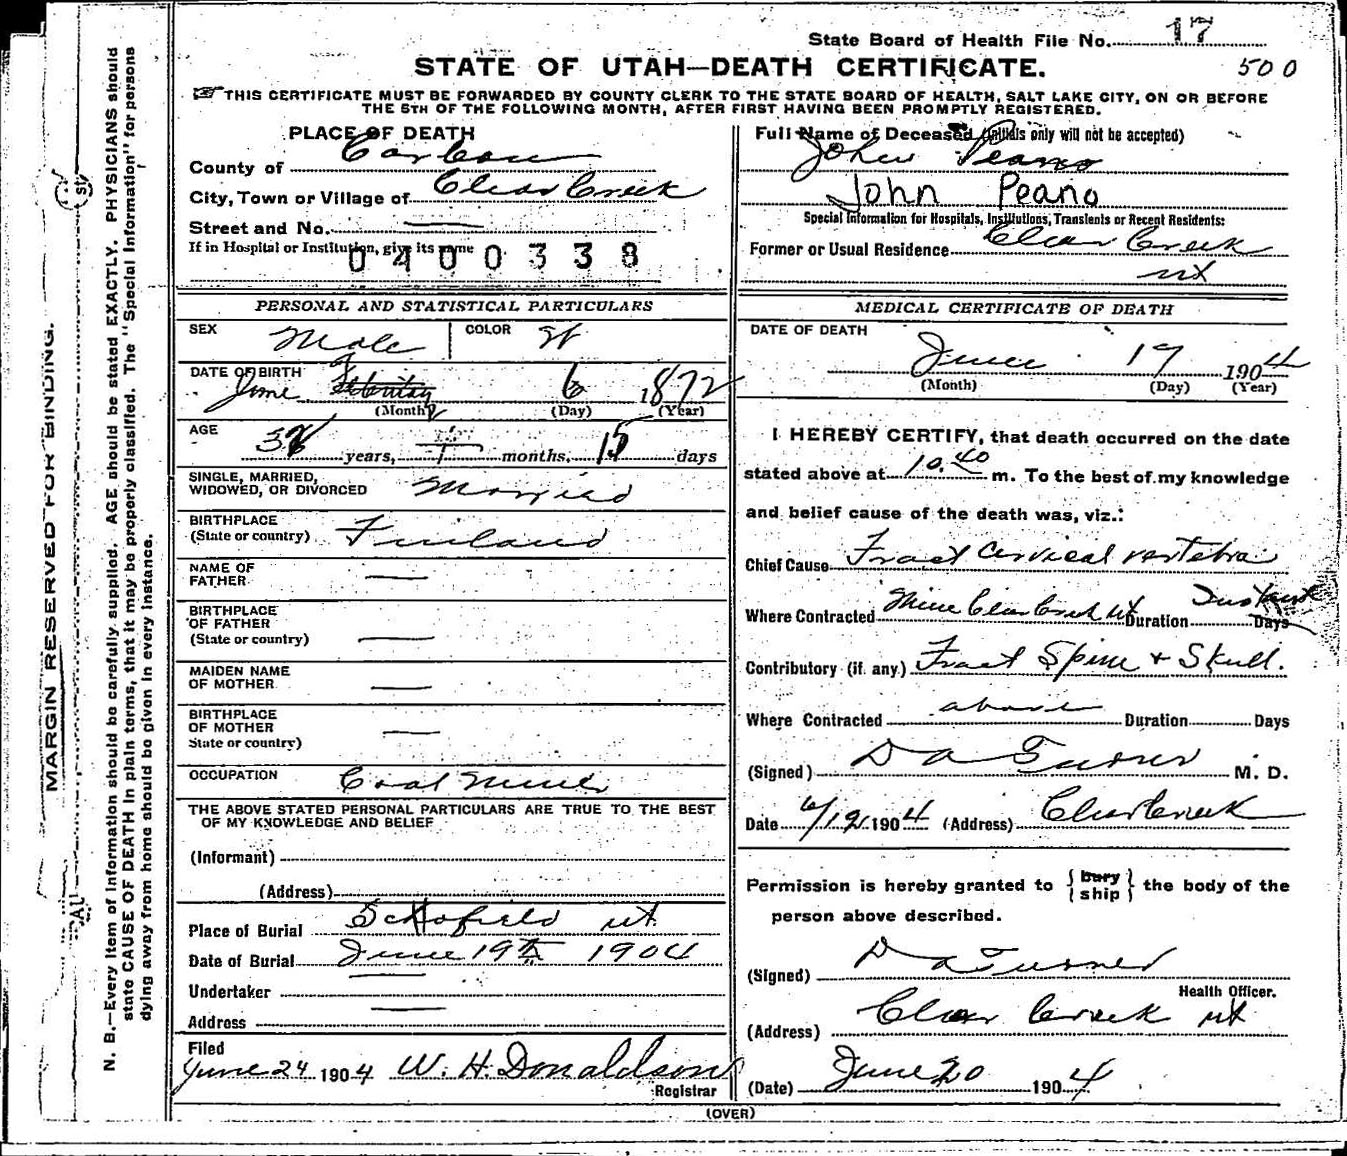 State Board of Health File No. 17
STATE OF UTAH—DEATH CERTIFICATE.
500
THIS CERTIFICATE MUST BE FORWARDED BY COUNTY CLERK TO THE STATE BOARD OF HEALTH, SALT LAKE CITY, ON OR BEFORE
THE 5TH OF THE FOLLOWING MONTH, AFTER FIRST HAVING BEEN PROMPTLY REGISTERED.
MARGIN RESERVED FOR BINDING.
N. B.—Every item of information should be carefully supplied. AGE should be stated EXACTLY. PHYSICIANS should
state CAUSE OF DEATH in plain terms, that it may be properly classified. The "Special Information" for persons
dying away from home should be given in every instance.
PLACE OF DEATH
County of Carbon
City, Town or Village of Clear Creek
Street and No. —
If in Hospital or Institution, give its name
0400338
PERSONAL AND STATISTICAL PARTICULARS
SEX Male COLOR W
DATE OF BIRTH
June 6 1872
(Month) (Day) (Year)
AGE
years, months, 15 days
SINGLE, MARRIED,
WIDOWED, OR DIVORCED Married
BIRTHPLACE
(State or country) Finland
NAME OF
FATHER —
BIRTHPLACE
OF FATHER
(State or country) —
MAIDEN NAME
OF MOTHER —
BIRTHPLACE
OF MOTHER
State or country) —
OCCUPATION Coal Miner
THE ABOVE STATED PERSONAL PARTICULARS ARE TRUE TO THE BEST
OF MY KNOWLEDGE AND BELIEF
(Informant)
(Address)
Place of Burial Schofield ut.
Date of Burial June 19th 1904
Undertaker —
Address —
Filed
June 24 1904 W. H. Donaldson
Registrar
Full Name of Deceased (initials only will not be accepted)
John Peano
John Peano
Special Information for Hospitals, Institutions, Transients or Recent Residents:
Former or Usual Residence Clear Creek
ut
MEDICAL CERTIFICATE OF DEATH
DATE OF DEATH
June 17 1904
(Month) (Day) (Year)
I HEREBY CERTIFY, that death occurred on the date
stated above at 10.40 m. To the best of my knowledge
and belief cause of the death was, viz.:
Chief Cause Fract Cervical vertebra
Where Contracted Mine Clear Creek ut Duration Instant Days
Contributory (if any) Fract Spine + Skull.
Where Contracted above Duration Days
(Signed) D A Turner M. D.
Date 6/19/1904 (Address) Clear Creek
Permission is hereby granted to { bury ship } the body of the
person above described.
(Signed) D A Turner
Health Officer.
(Address) Clear Creek ut
(Date) June 20 1904
(OVER)